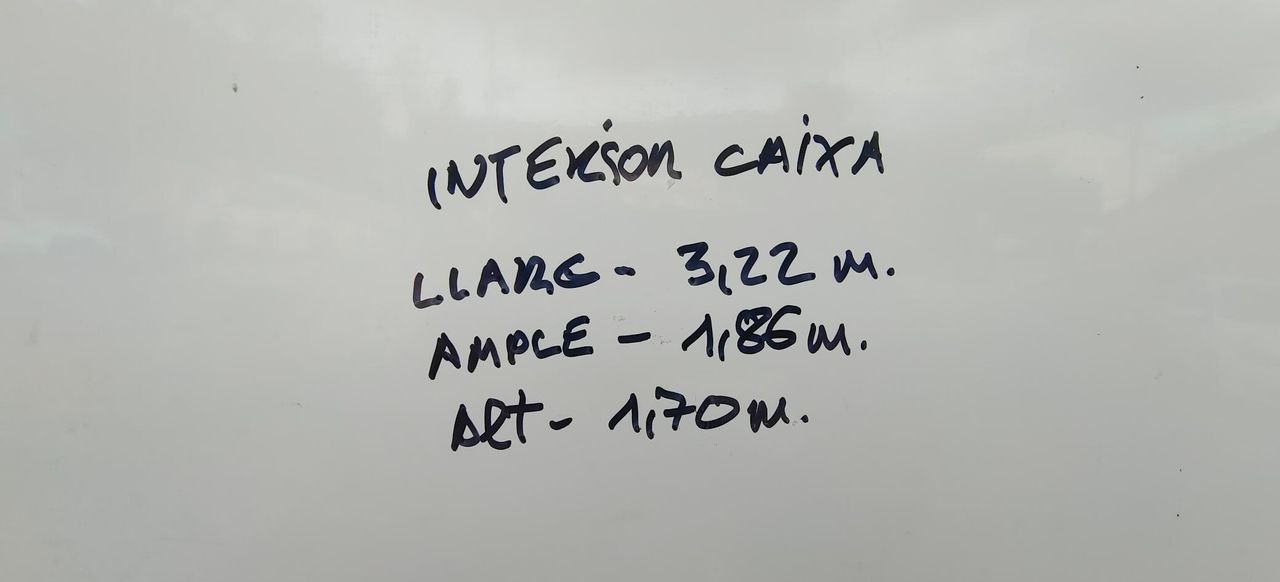 INTERIOR CAIXA
LLARG - 3,22 m.
AMPLE - 1,86 m.
Alt - 1,70 m.